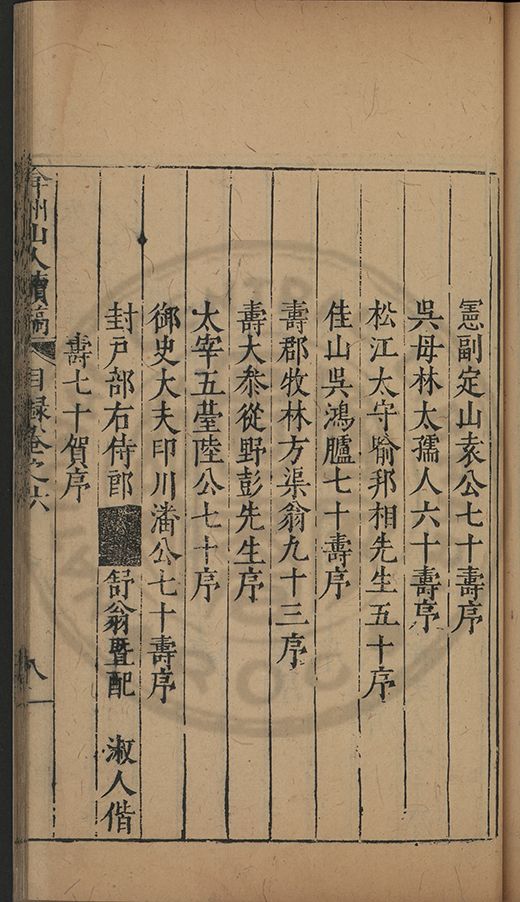 憲副定山袁公七十壽序
吳母林太孺人六十壽序
松江太守喻邦相先生五十序
佳山吳鴻臚七十壽序
壽郡牧林方渠翁九十三序
壽大叅從野彭先生序
太宰五薹陸公七十序
御史大夫印川潘公七十壽序
封戸部右侍郎 舒翁暨配 淑人偕
壽七十賀序
弇州山人續稿 目録卷之六 八